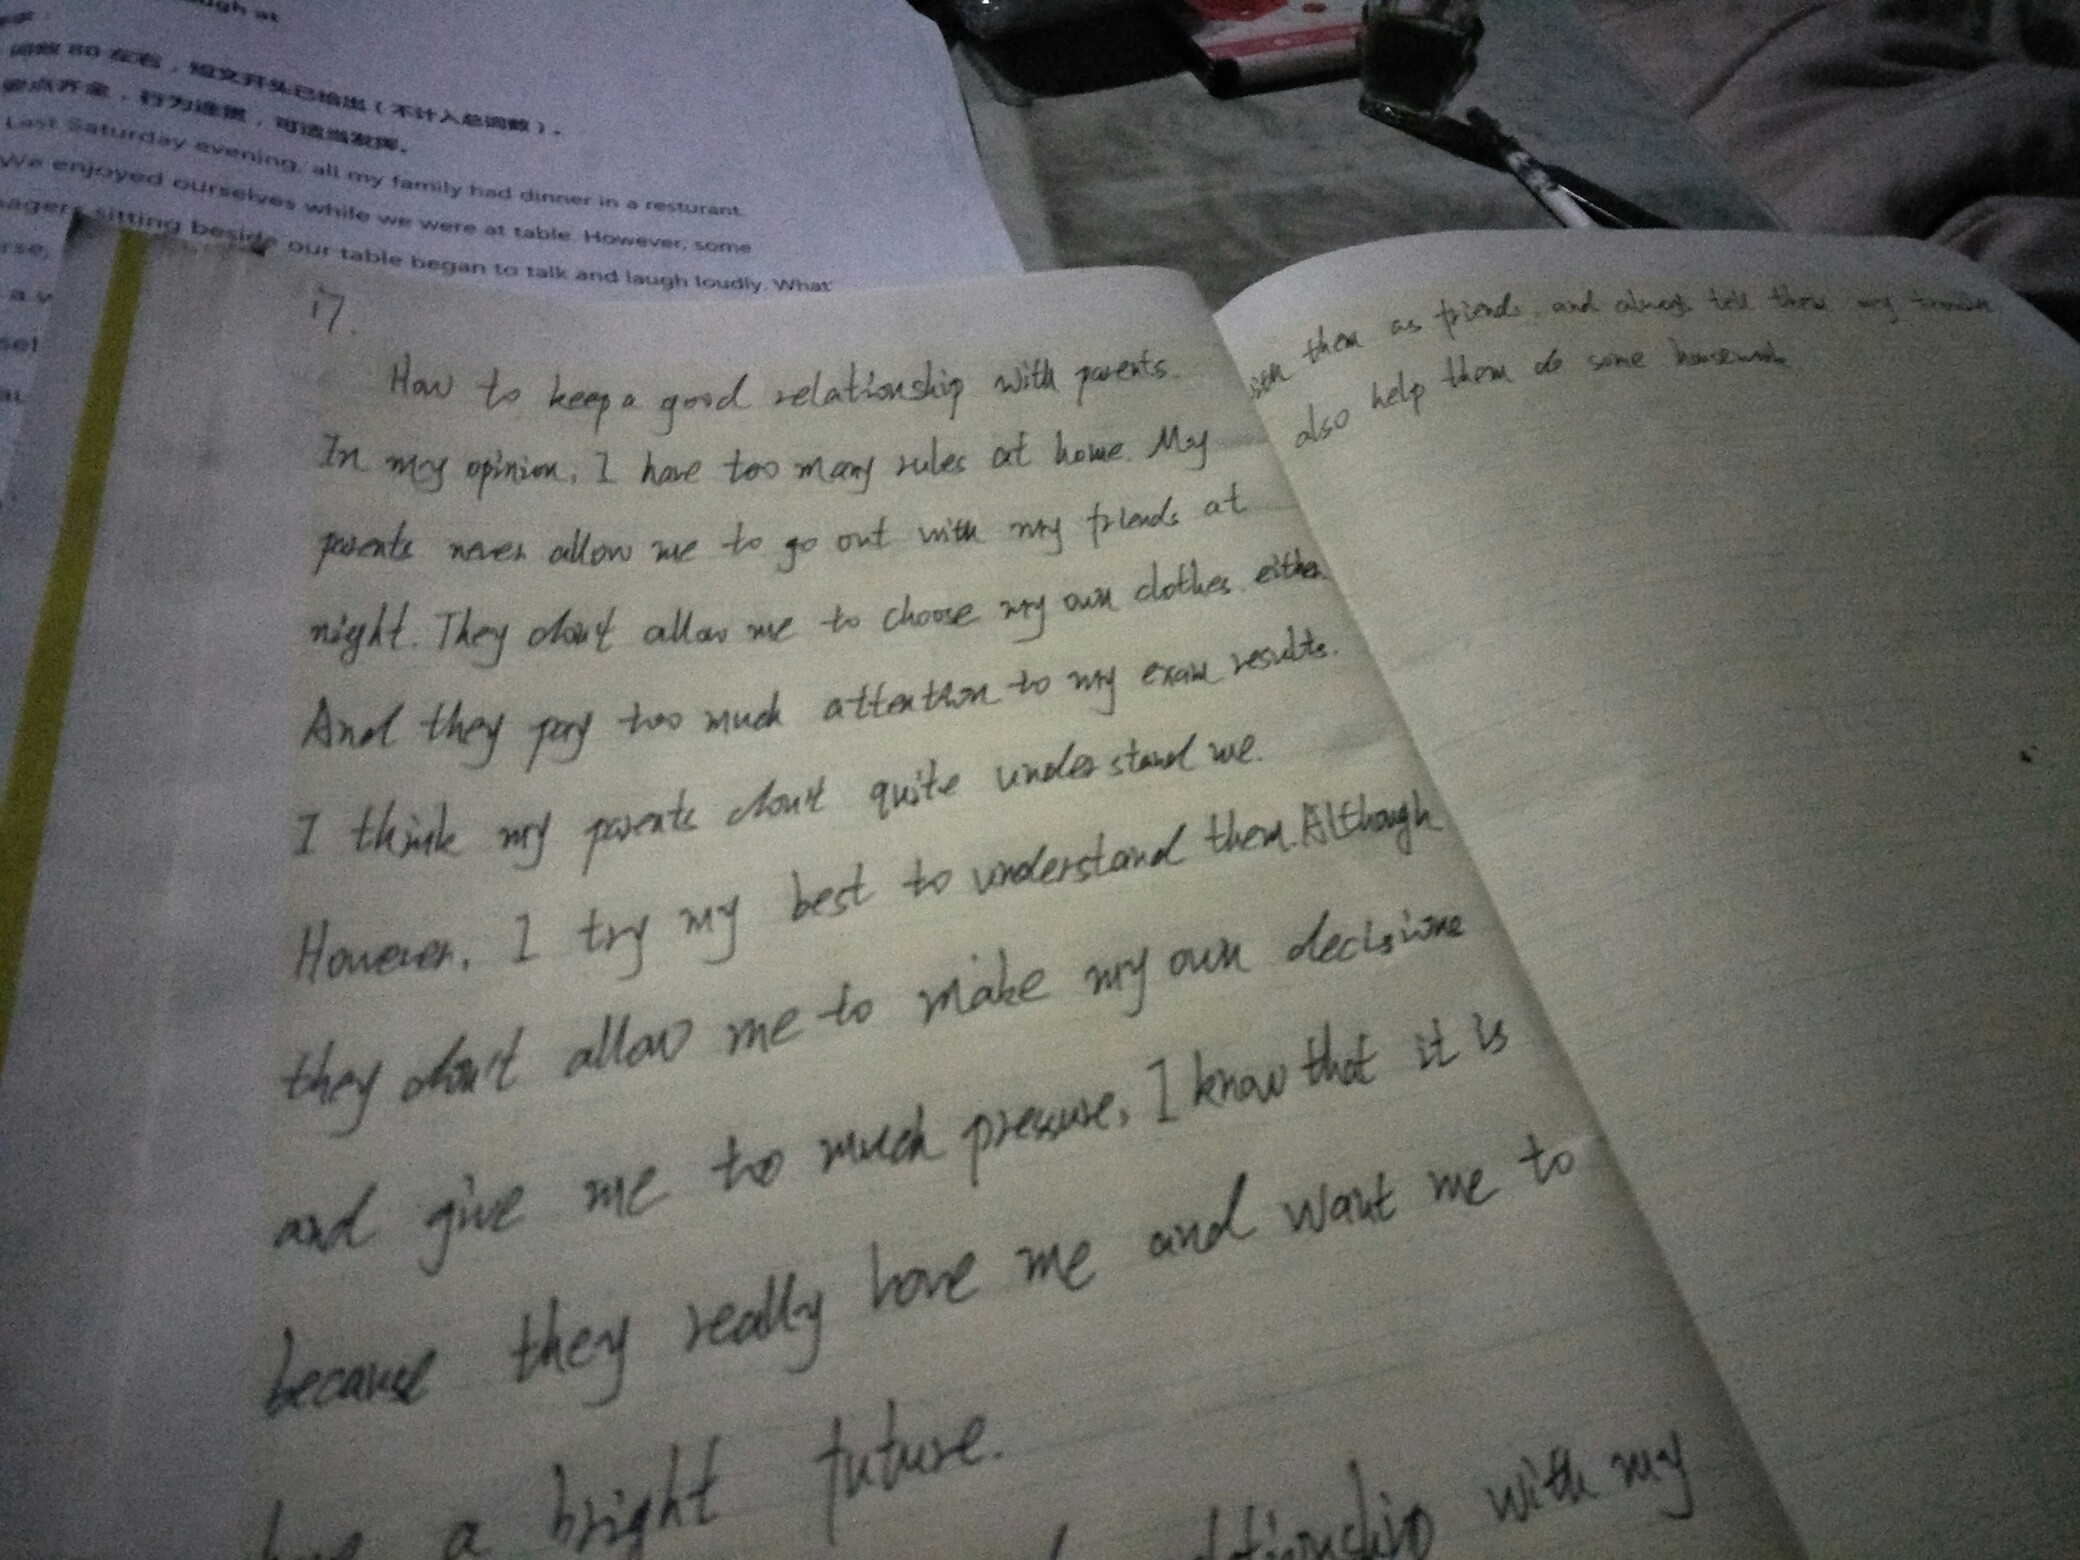 ugh at
词数 80 左右，短文开头已给出（不计入总词数）。
要点齐全，行为连贯，可适当发挥。
Last Saturday evening, all my family had dinner in a resturant.
We enjoyed ourselves while we were at table. However, some
agers sitting beside our table began to talk and laugh loudly. What
rse,
a v
sel
17.
How to keep a good relationship with parents.
In my opinion, I have too many rules at home. My
parents never allow me to go out with my friends at
night. They don't allow me to choose my own clothes either
And they pay too much attention to my exam results.
I think my parents don't quite understand me.
However, I try my best to understand them. Although
they don't allow me to make my own decisions
and give me too much pressure, I know that it is
because they really love me and want me to
have a bright future.
relationship with my
with them as friends, and always tell them my
also help them do some housework